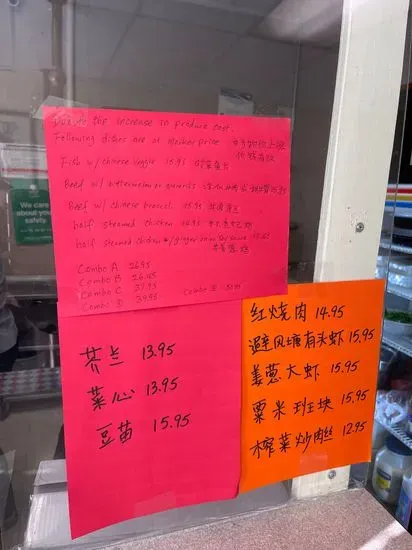 Due to the increase in produce cost.
Following dishes are at market price
Fish w/ chinese veggie 15.95
Beef w/ bittermelon or
Beef w/ chinese broccoli 15.95
half steamed chicken
half steamed chicken w/ ginger
Combo A 26.95
Combo B
Combo C 37.95
Combo D 39.95
芥兰 13.95
菜心 13.95
豆苗 15.95
红烧肉 14.95
避风塘有头虾 15.95
姜葱大虾 15.95
粟米班块 15.95
榨菜炒肉丝 12.95
We care
about your
safety.